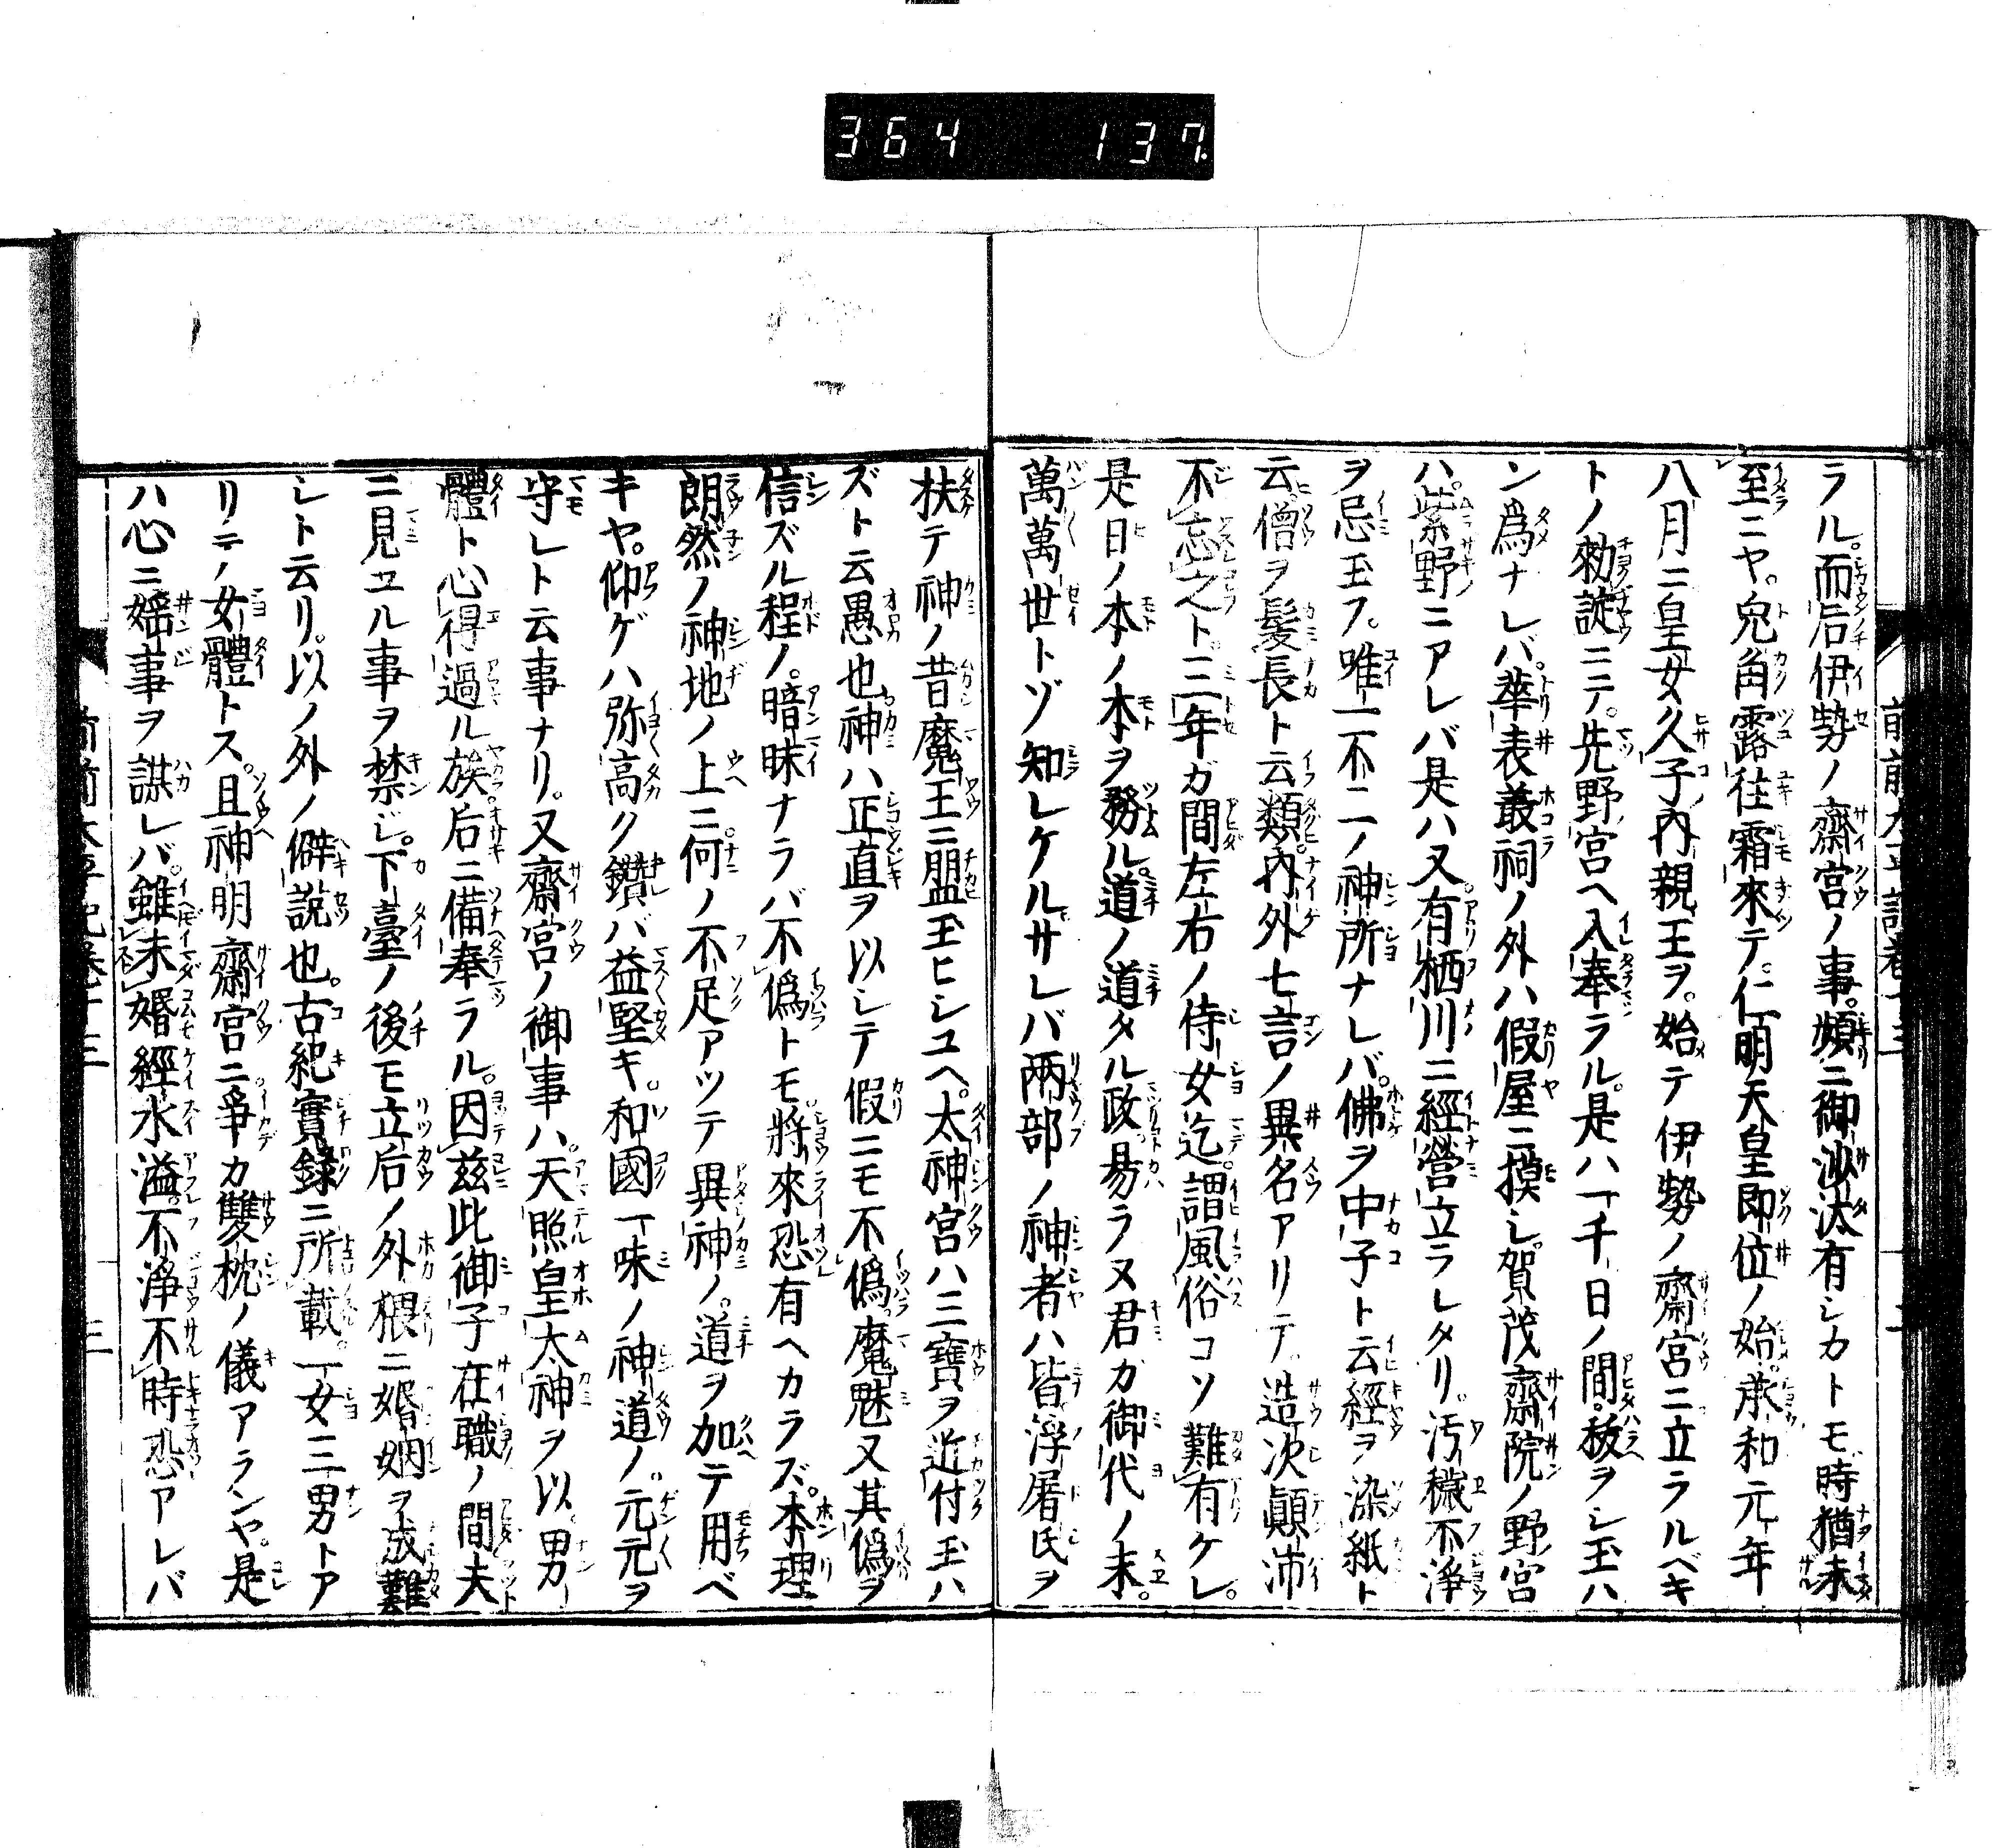 364 137
ラル。而后伊勢ノ齋宮ノ事。頻ニ御沙汰有シカトモ時猶未
至ニヤ。兎角露往霜來テ。仁明天皇即位ノ始。承和元年
八月ニ皇女久子内親王ヲ。始テ伊勢ノ齋宮ニ立ラルベキ
トノ勅諚ニテ。先野宮ヘ入奉ラル。是ハ一千日ノ間。祓ヲシ玉ハ
ン爲ナレバ。華表叢祠ノ外ハ假屋ニ摸シ。賀茂齋院ノ野宮
ハ。紫野ニアレバ是ハ又有栖川ニ經營立ラレタリ。汚穢不淨
ヲ忌玉フ。唯一不二ノ神所ナレバ。佛ヲ中子ト云經ヲ染紙ト
云。僧ヲ髪長ト云類。内外七言ノ異名アリテ。造次顛沛
不忘之ト。三年ガ間左右ノ侍女迄。謂風俗コソ難有ケレ。
是日ノ本ノ本ヲ務ル。道ノ道タル政。易ラヌ君カ御代ノ末。
萬萬世トゾ知レケル。サレバ兩部ノ神者ハ皆浮屠氏ヲ
扶テ神ノ昔魔王ニ盟玉ヒシユヘ。太神宮ハ三寶ヲ近付玉ハ
ズト云愚也。神ハ正直ヲ以シテ假ニモ不僞。魔魅又其僞ヲ
信ズル程ノ。暗昧ナラバ不僞トモ。將來恐有ヘカラズ。本理
朗然ノ神地ノ上ニ。何ノ不足アツテ異神ノ。道ヲ加テ用ベ
キヤ。仰ゲハ弥高ク鑽バ益堅キ。和國一味ノ神道ノ。元元ヲ
守レト云事ナリ。又齋宮ノ御事ハ。天照皇太神ヲ以。男
體ト心得過ル族。后ニ備奉ラル。因茲此御子在職ノ間夫
ニ見ユル事ヲ禁ジ。下臺ノ後モ立后ノ外猥ニ婚姻ヲ成難
シト云リ。以ノ外ノ僻説也。古紀實錄ニ所載。一女三男トア
リテノ女體トス。且神明齋宮ニ爭カ雙枕ノ儀アランヤ。是
ハ心ニ婬事ヲ謀レバ。雖未婚經水溢。不淨不時恐アレバ
三